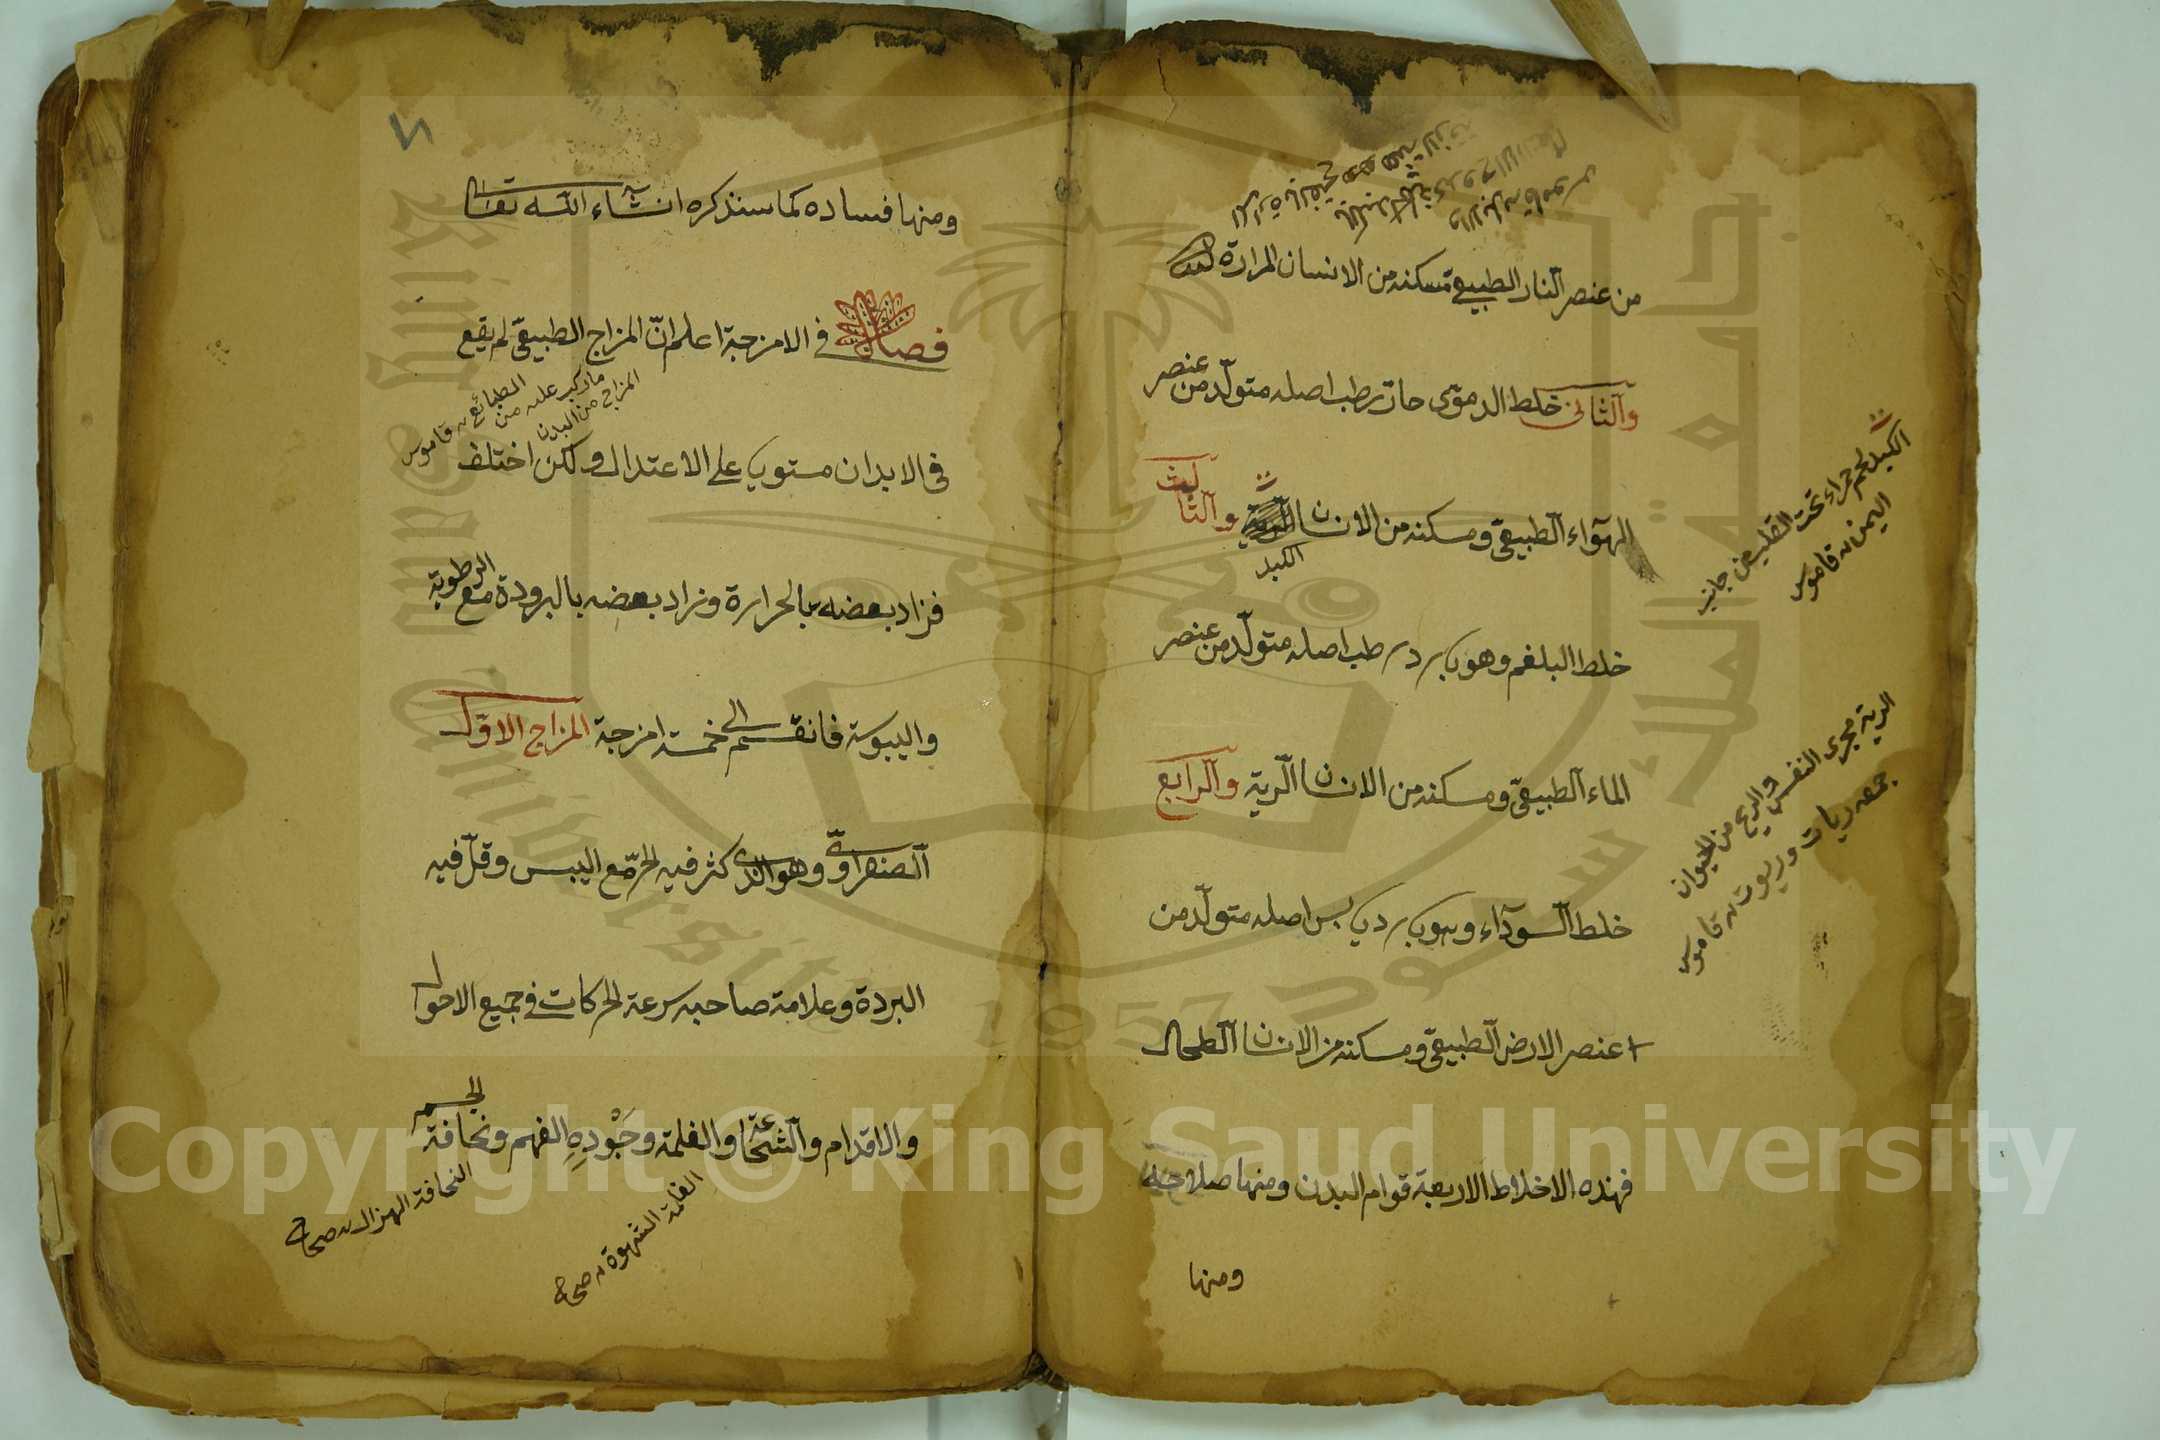 من عنصر النار الطبيعي مسكنه من الانسان المرارة
والثاني خلط الدموي حار رطب اصله متولد من عنصر
الهوآء الطبيعي ومسكنه من الانسان الكبد والثالث
خلط البلغم وهو بارد رطب اصله متولد من عنصر
المآء الطبيعي ومسكنه من الانسان الرية والرابع
خلط السودآء وهو بارد يابس اصله متولد من
عنصر الارض الطبيعي ومسكنه من الانسان الطحال
فهذه الاخلاط الاربعة قوام البدن ومنها صلاحه
ومنها
الكبد لحم حمراء تحت القلب من جانب
اليمن قاموس
الرية مجرى النفس والريح من الحيوان
جمعه ريات وريوت قاموس
ومنها فساده كما سنذكره ان شاء الله تعالى
فصل في الامزجة اعلم انّ المزاج الطبيعيّ لم يقع
المزاج من البدن
ما ركب عليه من
الطبائع قاموس
في الابدان مستويا على الاعتدال ولكن اختلف
فزاد بعضه بالحرارة وزاد بعضه بالبرودة مع الرطوبة
واليبوسة فانقسم الى خمسة امزجة المزاج الاوّل
الصفراويّ وهو الذي كثر فيه الحرّ مع اليبس وقلّ فيه
البردة وعلامة صاحبه سرعة الحركات في جميع الاحوال
والاقدام والشجاعة والغلمة وجودة الفهم ونحافة الجسم
الغلمة الشهوة صحاح
النحافة الهزال صحاح
Copyright © King Saud University
King Saud University
جامعة الملك سعود
1957